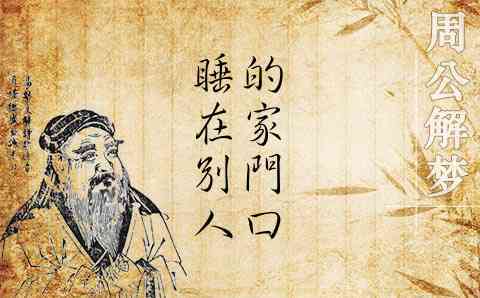 周公解梦
睡在别人
的家門口